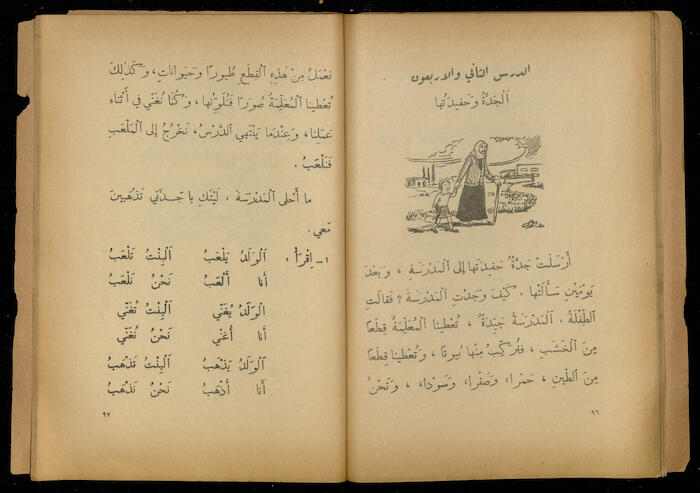 الدرس الثاني والاربعون
اَلْجَدَّةُ وَحَفِيدَتُها
أَرْسَلَتْ جَدَّةٌ حَفِيدَتَها إِلى الْمَدْرَسَةِ ، وَبَعْدَ
يَوْمَيْنِ سَأَلَتْها . كَيْفَ وَجَدْتِ الْمَدْرَسَةَ ؟ فَقالَتِ
الطِّفْلَةُ . اَلْمَدْرَسَةُ جَيِّدَةٌ ، تُعْطينا الْمُعَلِّمَةُ قِطَعاً
مِنَ الْخَشَبِ ، فَنُرَكِّبُ مِنْها بُيوتاً ، وَتُعْطينا قِطَعاً
مِنَ الطّينِ ، حَمْراءَ وَصَفْراءَ وَسَوْداءَ ، وَنَحْنُ
٩٦
نَعْمَلُ مِنْ هٰذِهِ الْقِطَعِ طُيورًا وَحَيَواناتٍ ، وَكَذٰلِكَ
تُعْطينا الْمُعَلِّمَةُ صُوَرًا فَنُلَوِّنُها ، وَكُنّا نُغَنّي في أَثْناءِ
عَمَلِنا ، وَعِنْدَما يَنْتَهي الدَّرْسُ ، نَخْرُجُ إِلى الْمَلْعَبِ
فَنَلْعَبُ .
ما أَحْلى الْمَدْرَسَةَ ، لَيْتَكِ يا جَدَّتي تَذْهَبينَ
مَعي .
١ـ اِقْرَأْ : اَلْوَلَدُ يَلْعَبُ اَلْبِنْتُ تَلْعَبُ
أَنا أَلْعَبُ نَحْنُ نَلْعَبُ
اَلْوَلَدُ يُغَنّي اَلْبِنْتُ تُغَنّي
أَنا أُغَنّي نَحْنُ نُغَنّي
اَلْوَلَدُ يَذْهَبُ اَلْبِنْتُ تَذْهَبُ
أَنا أَذْهَبُ نَحْنُ نَذْهَبُ
٩٧